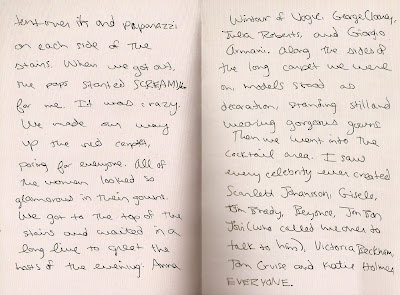 tent over it, and paparazzi
on each side of the
stairs. When we got out,
the paps started SCREAMING
for me. It was crazy.
We made our way
up the red carpet,
posing for everyone. All of
the women looked so
glamorous in their gowns.
We got to the top of the
stairs and waited in a
long line to greet the
hosts of the evening: Anna
Wintour of Vogue, George Clooney,
Julia Roberts, and Giorgio
Armani. Along the sides of
the long carpet we were
on, models stood as
decoration, standing still and
wearing gorgeous gowns
Then we went into the
cocktail area. I saw
every celebrity ever created
Scarlett Johannson, Gisele,
Tom Brady, Beyonce, Jon Bon
Jovi (who called me over to
talk to him), Victoria Beckham,
Tom Cruise and Katie Holmes
EVERYONE.